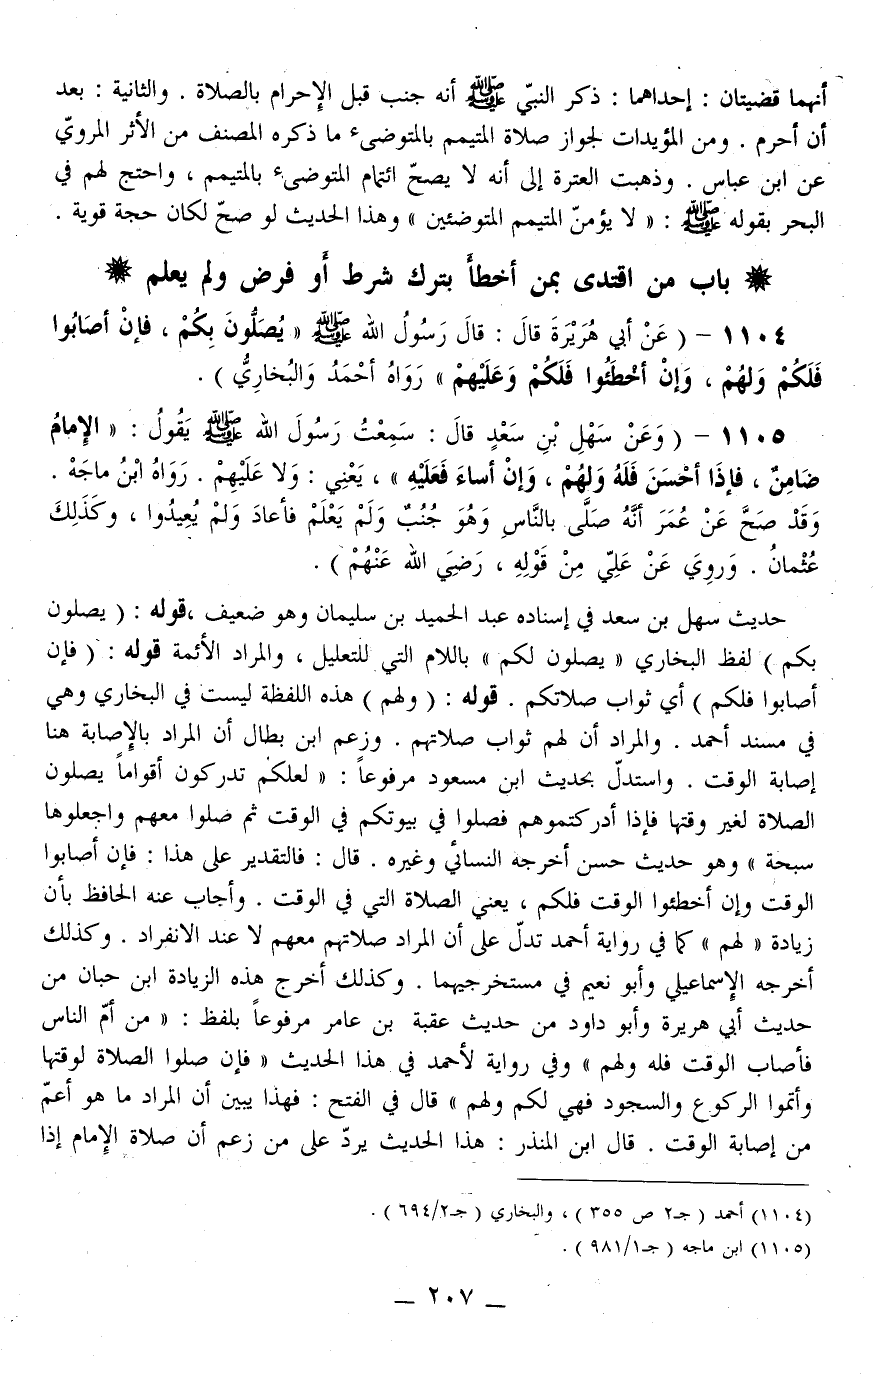 أنهما قضيتان : إحداهما : ذكر النبيّ ﷺ أنه جنب قبل الإحرام بالصلاة . والثانية : بعد
أن أحرم . ومن المؤيدات لجواز صلاة المتيمم بالمتوضىء ما ذكره المصنف من الأثر المرويّ
عن ابن عباس . وذهبت العترة إلى أنه لا يصحّ ائتمام المتوضىء بالمتيمم ، واحتج لهم في
البحر بقوله ﷺ : « لا يؤمنّ المتيمم المتوضئين » وهذا الحديث لو صحّ لكان حجة قوية .
❋ باب من اقتدى بمن أخطأ بترك شرط أو فرض ولم يعلم ❋
١١٠٤ – ( عَنْ أبي هُرَيْرَةَ قالَ : قالَ رَسُولُ الله ﷺ « يُصَلُّونَ بِكُمْ ، فإنْ أصَابُوا
فَلَكُمْ وَلهُمْ ، وَإنْ أخْطَئُوا فَلَكُمْ وَعَلَيْهِمْ » رَوَاهُ أحْمَدُ وَالبُخارِيُّ ) .
١١٠٥ – ( وَعَنْ سَهْلِ بْنِ سَعْدٍ قالَ : سَمِعْتُ رَسُولَ الله ﷺ يَقُولُ : « الإمامُ
ضَامِنٌ ، فإذَا أحْسَنَ فَلَهُ وَلهُمْ ، وَإنْ أساءَ فَعَلَيْهِ » ، يَعْنِي : وَلا عَلَيْهِمْ . رَوَاهُ ابْنُ ماجَهْ .
وَقَدْ صَحَّ عَنْ عُمَرَ أنَّهُ صَلَّى بالنَّاسِ وَهُوَ جُنُبٌ وَلَمْ يَعْلَمْ فأعادَ وَلمْ يُعِيدُوا ، وكَذَلِكَ
عُثْمانُ . وَرُوِيَ عَنْ عَلِيّ مِنْ قَوْلِهِ ، رَضِيَ الله عَنْهُمْ ) .
حديث سهل بن سعد في إسناده عبد الحميد بن سليمان وهو ضعيف ، قوله : ( يصلون
بكم ) لفظ البخاري « يصلون لكم » باللام التي للتعليل ، والمراد الأئمة قوله : ( فإن
أصابوا فلكم ) أي ثواب صلاتكم . قوله : ( ولهم ) هذه اللفظة ليست في البخاري وهي
في مسند أحمد . والمراد أن لهم ثواب صلاتهم . وزعم ابن بطال أن المراد بالإصابة هنا
إصابة الوقت . واستدلّ بحديث ابن مسعود مرفوعاً : « لعلكم تدركون أقواماً يصلون
الصلاة لغير وقتها فإذا أدركتموهم فصلوا في بيوتكم في الوقت ثم صلوا معهم واجعلوها
سبحة » وهو حديث حسن أخرجه النسائي وغيره . قال : فالتقدير على هذا : فإن أصابوا
الوقت وإن أخطئوا الوقت فلكم ، يعني الصلاة التي في الوقت . وأجاب عنه الحافظ بأن
زيادة « لهم » كما في رواية أحمد تدلّ على أن المراد صلاتهم معهم لا عند الانفراد . وكذلك
أخرجه الإسماعيلي وأبو نعيم في مستخرجيهما . وكذلك أخرج هذه الزيادة ابن حبان من
حديث أبي هريرة وأبو داود من حديث عقبة بن عامر مرفوعاً بلفظ : « من أمّ الناس
فأصاب الوقت فله ولهم » وفي رواية لأحمد في هذا الحديث « فإن صلوا الصلاة لوقتها
وأتموا الركوع والسجود فهي لكم ولهم » قال في الفتح : فهذا يبين أن المراد ما هو أعمّ
من إصابة الوقت . قال ابن المنذر : هذا الحديث يردّ على من زعم أن صلاة الإمام إذا
(١١٠٤) أحمد ( جـ٢ ص ٣٥٥ ) ، والبخاري ( جـ٦٩٤/٢ ) .
(١١٠٥) ابن ماجه ( جـ٩٨١/١ ) .
– ٢٠٧ –